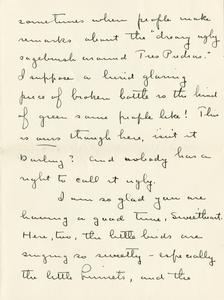 sometimes when people make
remarks about the "dreary ugly
sagebrush around Tres Piedras."
I suppose a lurid glaring
piece of broken bottle is the kind
of green some people like! This
is ours though here, isn't it
Darling? And nobody has a
right to call it ugly.
I am so glad you are
having a good time, Sweetheart.
Here, too, the little birds are
singing so sweetly – especially
the little Linnets, and the